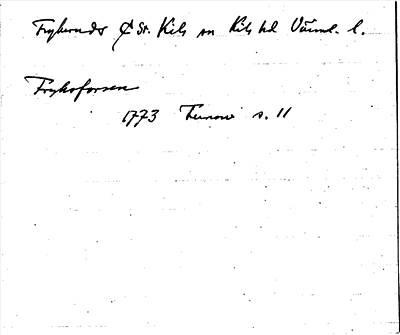 Frykerud St. Kils sn Kils hd Värml. l.
Fryksforsen
1773 Fernow s. 11